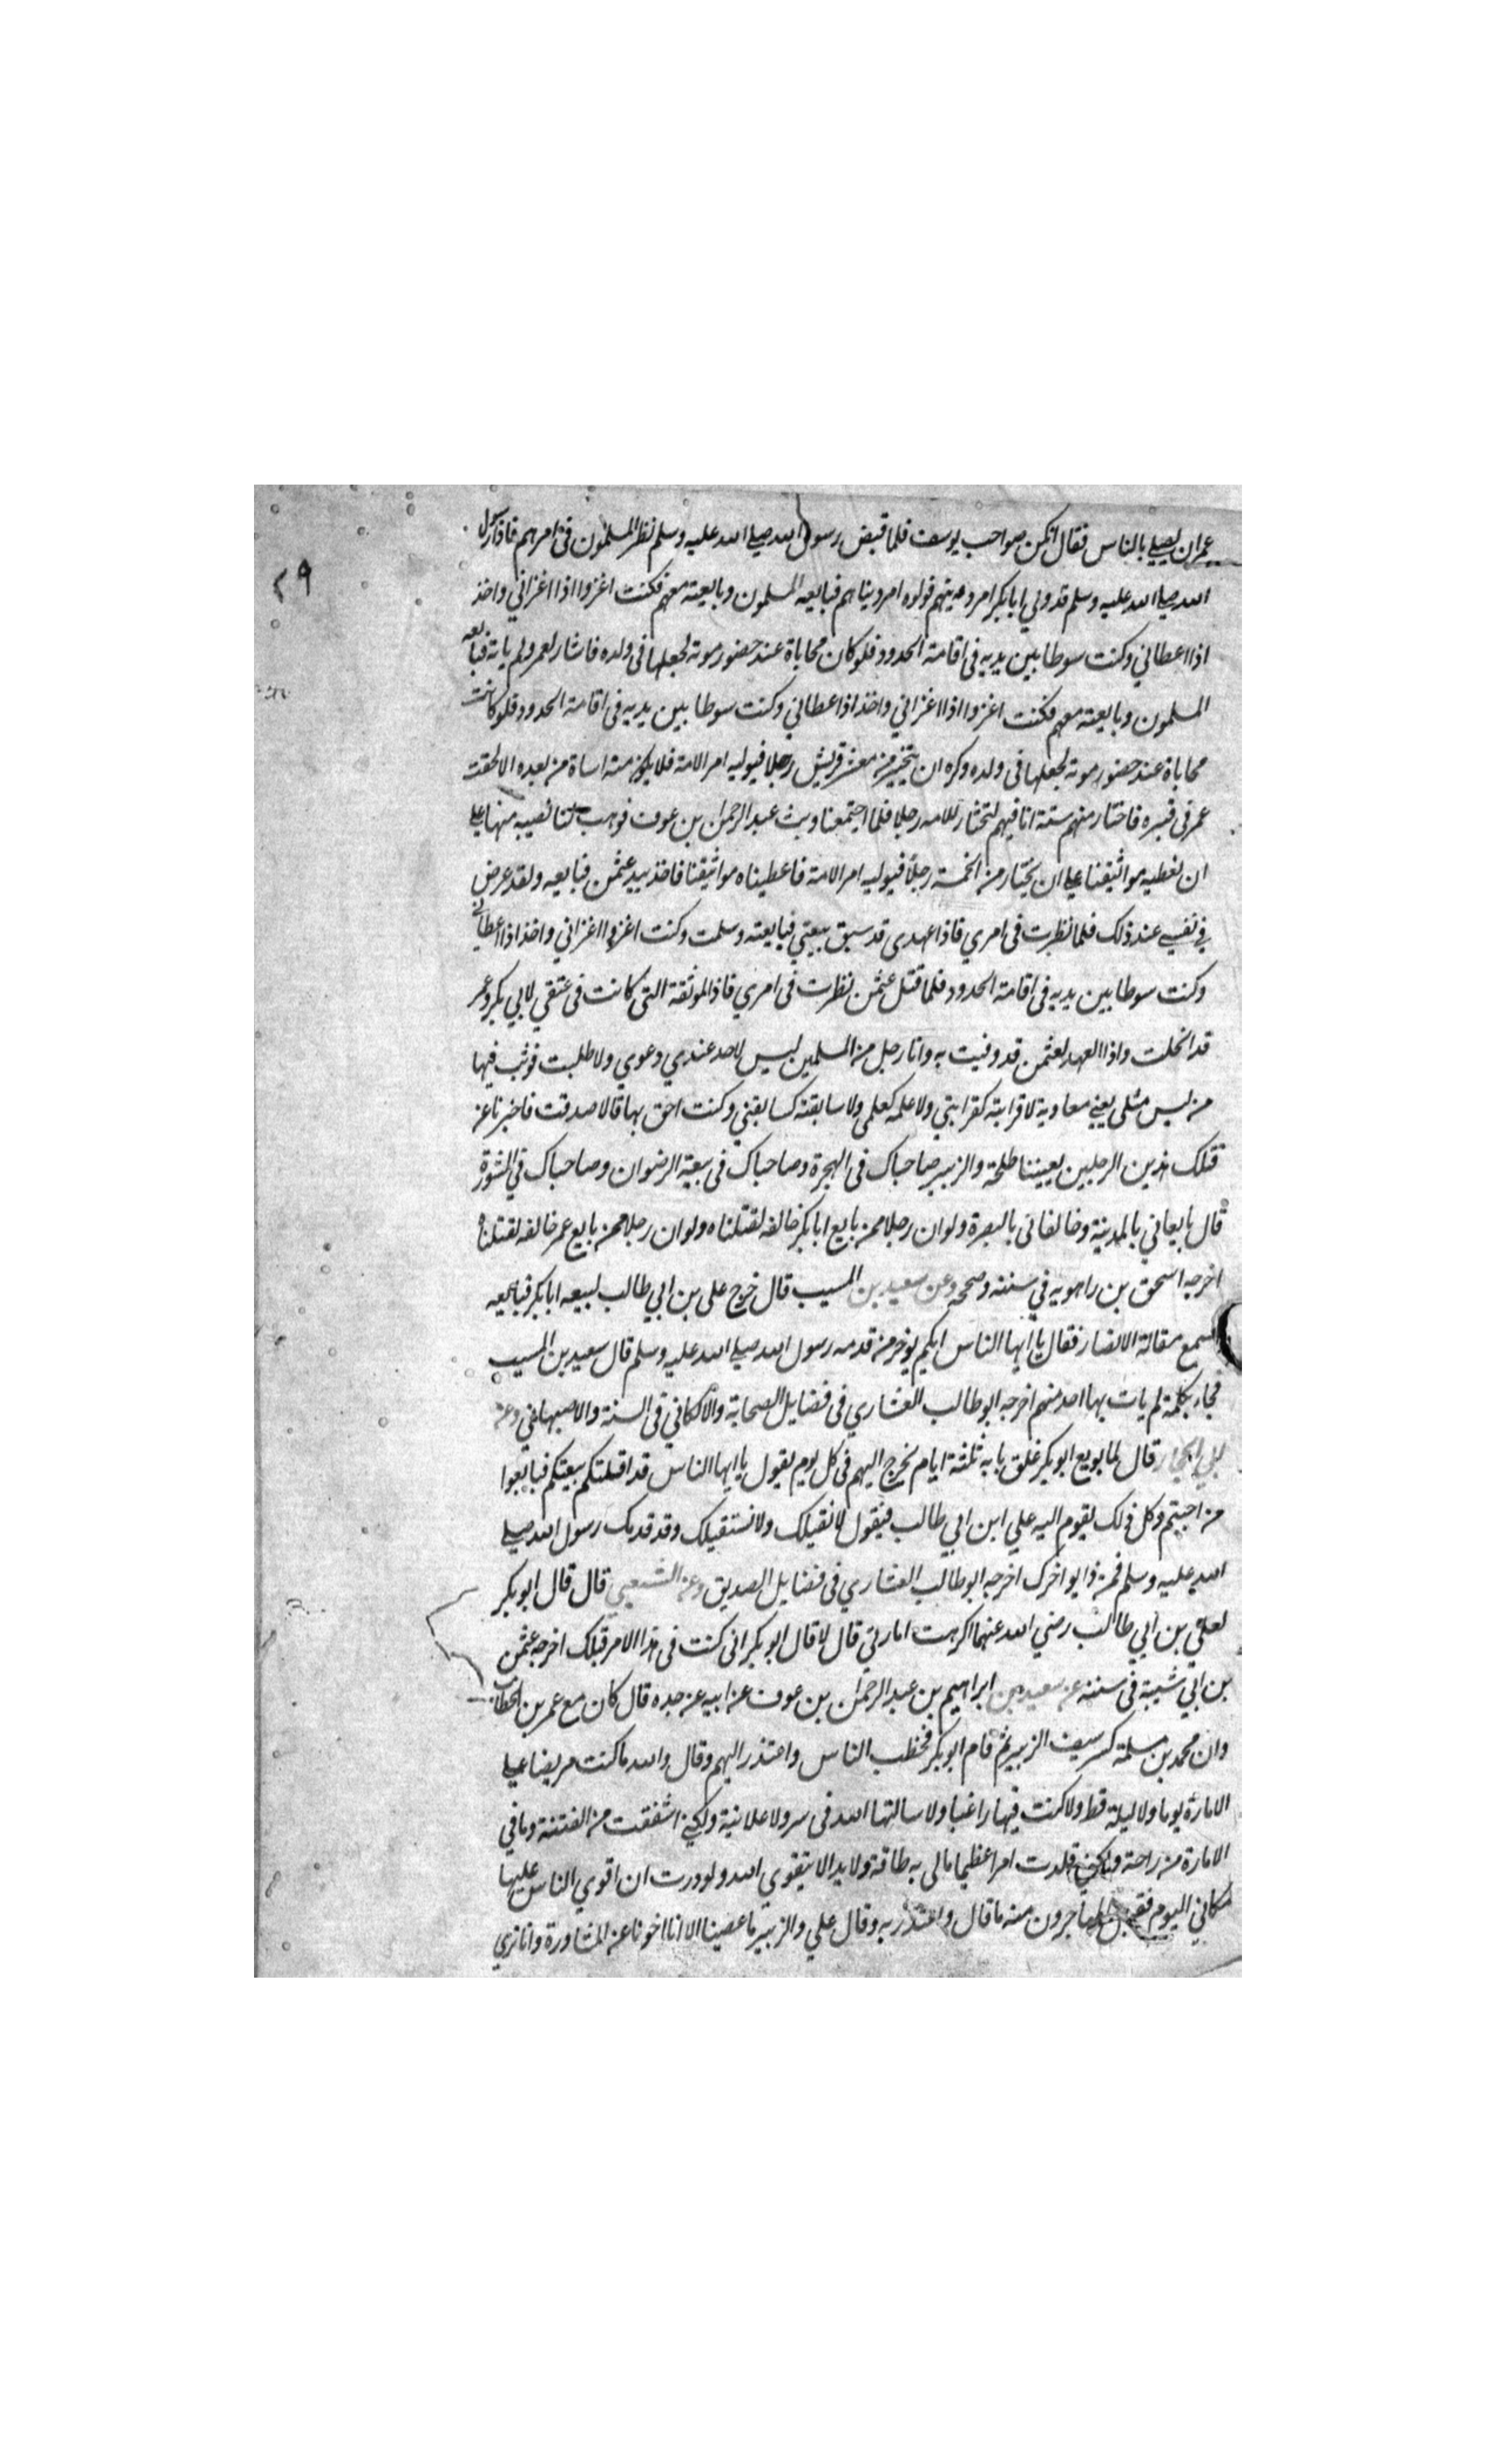 عمران يصلي بالناس فقال انكن صواحب يوسف فلما قبض رسول الله صلي الله عليه وسلم نظر المسلمون في امرهم فاذا رسول
٢٩
الله صلي الله عليه وسلم قد ولي ابا بكر امر دينهم فولوه امر دنياهم فبايعه المسلمون وبايعته معهم فكنت اغزوا اذا اغزاني واخذ
اذا اعطاني وكنت سوطا بين يديه في اقامة الحدود فلو كان محاباة عند حضور موته لجعلها في ولده فاشار لعمر ولم ياته فبايعه
المسلمون وبايعته معهم فكنت اغزوا اذا اغزاني واخذ اذا اعطاني وكنت سوطا بين يديه في اقامة الحدود فلو كانت
محاباة عند حضور موته لجعلها في ولده وكره ان يتخير من معشر قريش رجلا فيوليه امر الامة فلا يكون منه اساة من بعده الا لحقت
عمر في قبره فاختار منهم ستة انا فيهم لتختار للامه رجلا فلما اجتمعنا وثب عبد الرحمن بن عوف فوهب لنا نصيبه منها علي
ان نعطيه مواثيقنا علي ان يختار من الخمسة رجلا فيوليه امر الامة فاعطيناه مواثيقنا فاخذ بيد عثمن فبايعه ولقد عرض
في نفسي عند ذلك فلما نظرت في امري فاذا عهدي قد سبق بيعتي فبايعته وسلمت وكنت اغزوا اغزاني واخذ اذا اعطاني
وكنت سوطا بين يديه في اقامة الحدود فلما قتل عثمن نظرت في امري فاذا الموثقة التي كانت في عتقي لابي بكر وعمر
قد انحلت واذا العهد لعثمن قد وفيت به وانا رجل من المسلمين ليس لاحد عندي دعوي ولا طلبت فوثب فيها
من ليس مثلي يعني معاوية لا قرابته كقرابتي ولا علمه كعلمي ولا سابقته كسابقتي وكنت احق بها قالا صدقت فاخبرنا عن
قتلك هذين الرجلين يعنينا طلحة والزبير صاحباك في الهجرة وصاحباك في بيعة الرضوان وصاحباك في الشورة
قال بايعاني بالمدينة وخالفاني بالبصرة ولو ان رجلا ممن بايع ابا بكر خالفه لقتلناه ولو ان رجلا ممن بايع عمر خالفه لقتلناه
اخرجه اسحق بن راهويه في سننه وصححه وعن سعيد بن المسيب قال خرج علي بن ابي طالب لبيعه ابا بكر فبايعه
فسمع مقالة الانصار فقال يا ايها الناس ايكم يوخر من قدمه رسول الله صلي الله عليه وسلم قال سعيد بن المسيب
فجاء بكلمة لم يات بها احد منهم اخرجه ابو طالب العشاري في فضايل الصحابة والالكائي في السنة والاصبهاني وعن
ابي الجحاف قال لما بويع ابو بكر غلق بابه ثلثة ايام يخرج اليهم في كل يوم يقول يا ايها الناس قد اقلتكم بيعتكم فبايعوا
من احبتم وكل ذلك يقوم اليه علي ابن ابي طالب فيقول لا نقيلك ولا نستقيلك وقد قدمك رسول الله صلي
الله عليه وسلم فمن ذا يواخرك اخرجه ابو طالب العشاري في فضايل الصديق وعن الشعبي قال قال ابو بكر
لعلي بن ابي طالب رضي الله عنهما اكرهت امارتي قال لا قال ابو بكر اني كنت في هذا الامر قبلك اخرجه عثمن
بن ابي شيبة في سننه عن سعيد بن ابراهيم بن عبد الرحمن بن عوف عن ابيه عن جده قال كان مع عمر بن الخطاب
وان محمد بن مسلمة كسر سيف الزبير ثم قام ابو بكر فخطب الناس واعتذر اليهم وقال والله ما كنت مريضا علي
الامارة يوما ولا ليلة قط ولا كنت فيها راغبا ولا سالتها الله في سر ولا علانية ولكني اشفقت من الفتنة وما في
الامارة من راحة ولكني قلدت امرا عظيما مالي به طاقة ولا يد الا بتقوي الله ولوددت ان اقوي الناس عليها
مكاني اليوم فقبل المهاجرون منه ما قال واعتذر به وقال علي والزبير ما غضبنا الا انا اخرنا عن المشاورة وانا نري